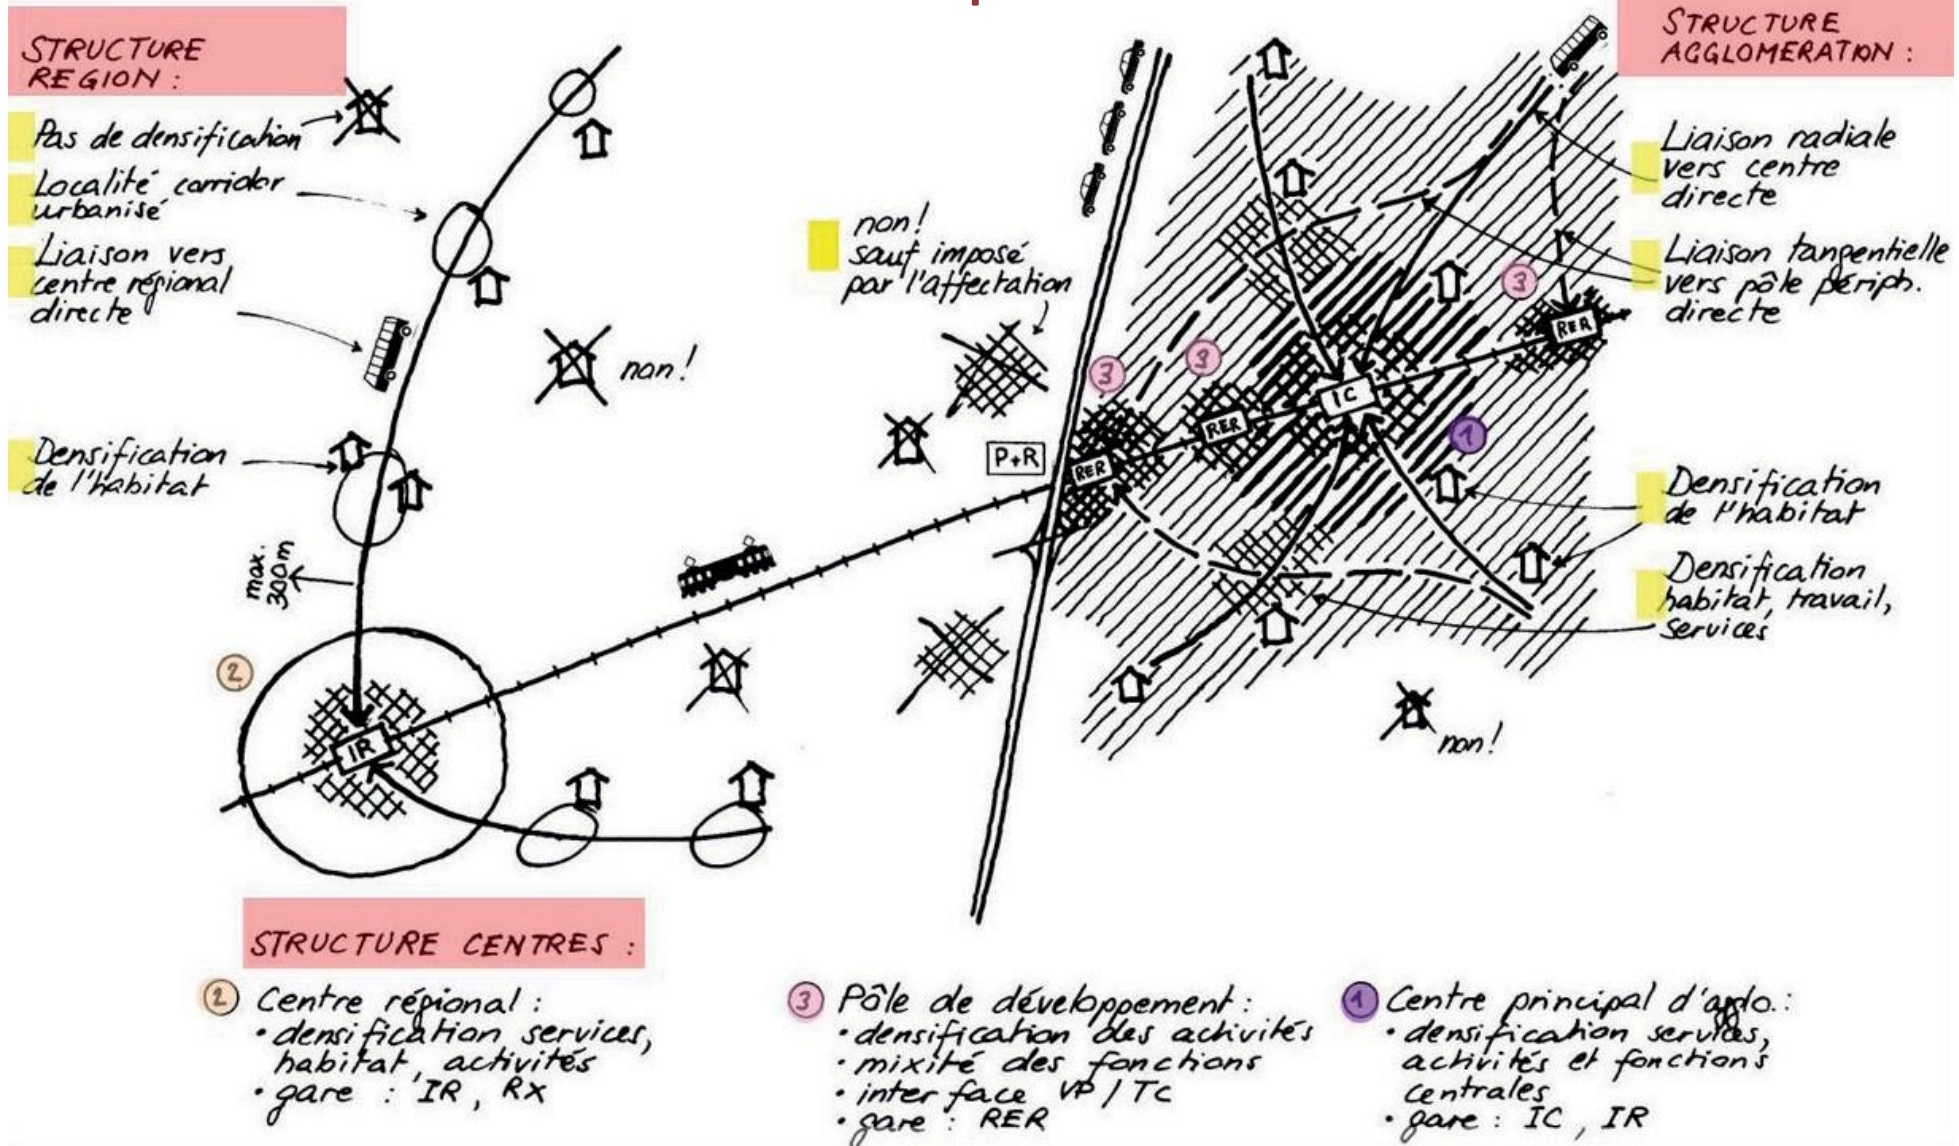 STRUCTURE
REGION :
Pas de densification
Localité corridor
urbanisé
Liaison vers
centre régional
directe
non!
Densification
de l'habitat
max.
300m
2
IR
non!
sauf imposé
par l'affectation
P+R
3
3
3
RER
RER
IC
RER
1
non!
STRUCTURE
AGGLOMERATION :
Liaison radiale
vers centre
directe
Liaison tangentielle
vers pôle périph.
directe
Densification
de l'habitat
Densification
habitat, travail,
services
STRUCTURE CENTRES :
2 Centre régional :
• densification services,
habitat, activités
• gare : IR, RX
3 Pôle de développement :
• densification des activités
• mixité des fonctions
• interface VP / TC
• gare : RER
1 Centre principal d'agglo. :
• densification services,
activités et fonctions
centrales
• gare : IC, IR